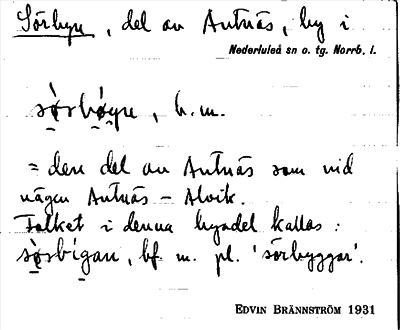 Sörbyn, del av Antnäs, by i
Nederluleå sn o. tg. Norrb. l.
sø̀rbǿyn, b.m.
= den del av Antnäs som vid
vägen Antnäs - Alvik.
Folket i denna byadel kallas:
sø̀rbígan, bf. m. pl. 'sörbyggar'.
EDVIN BRÄNNSTRÖM 1931